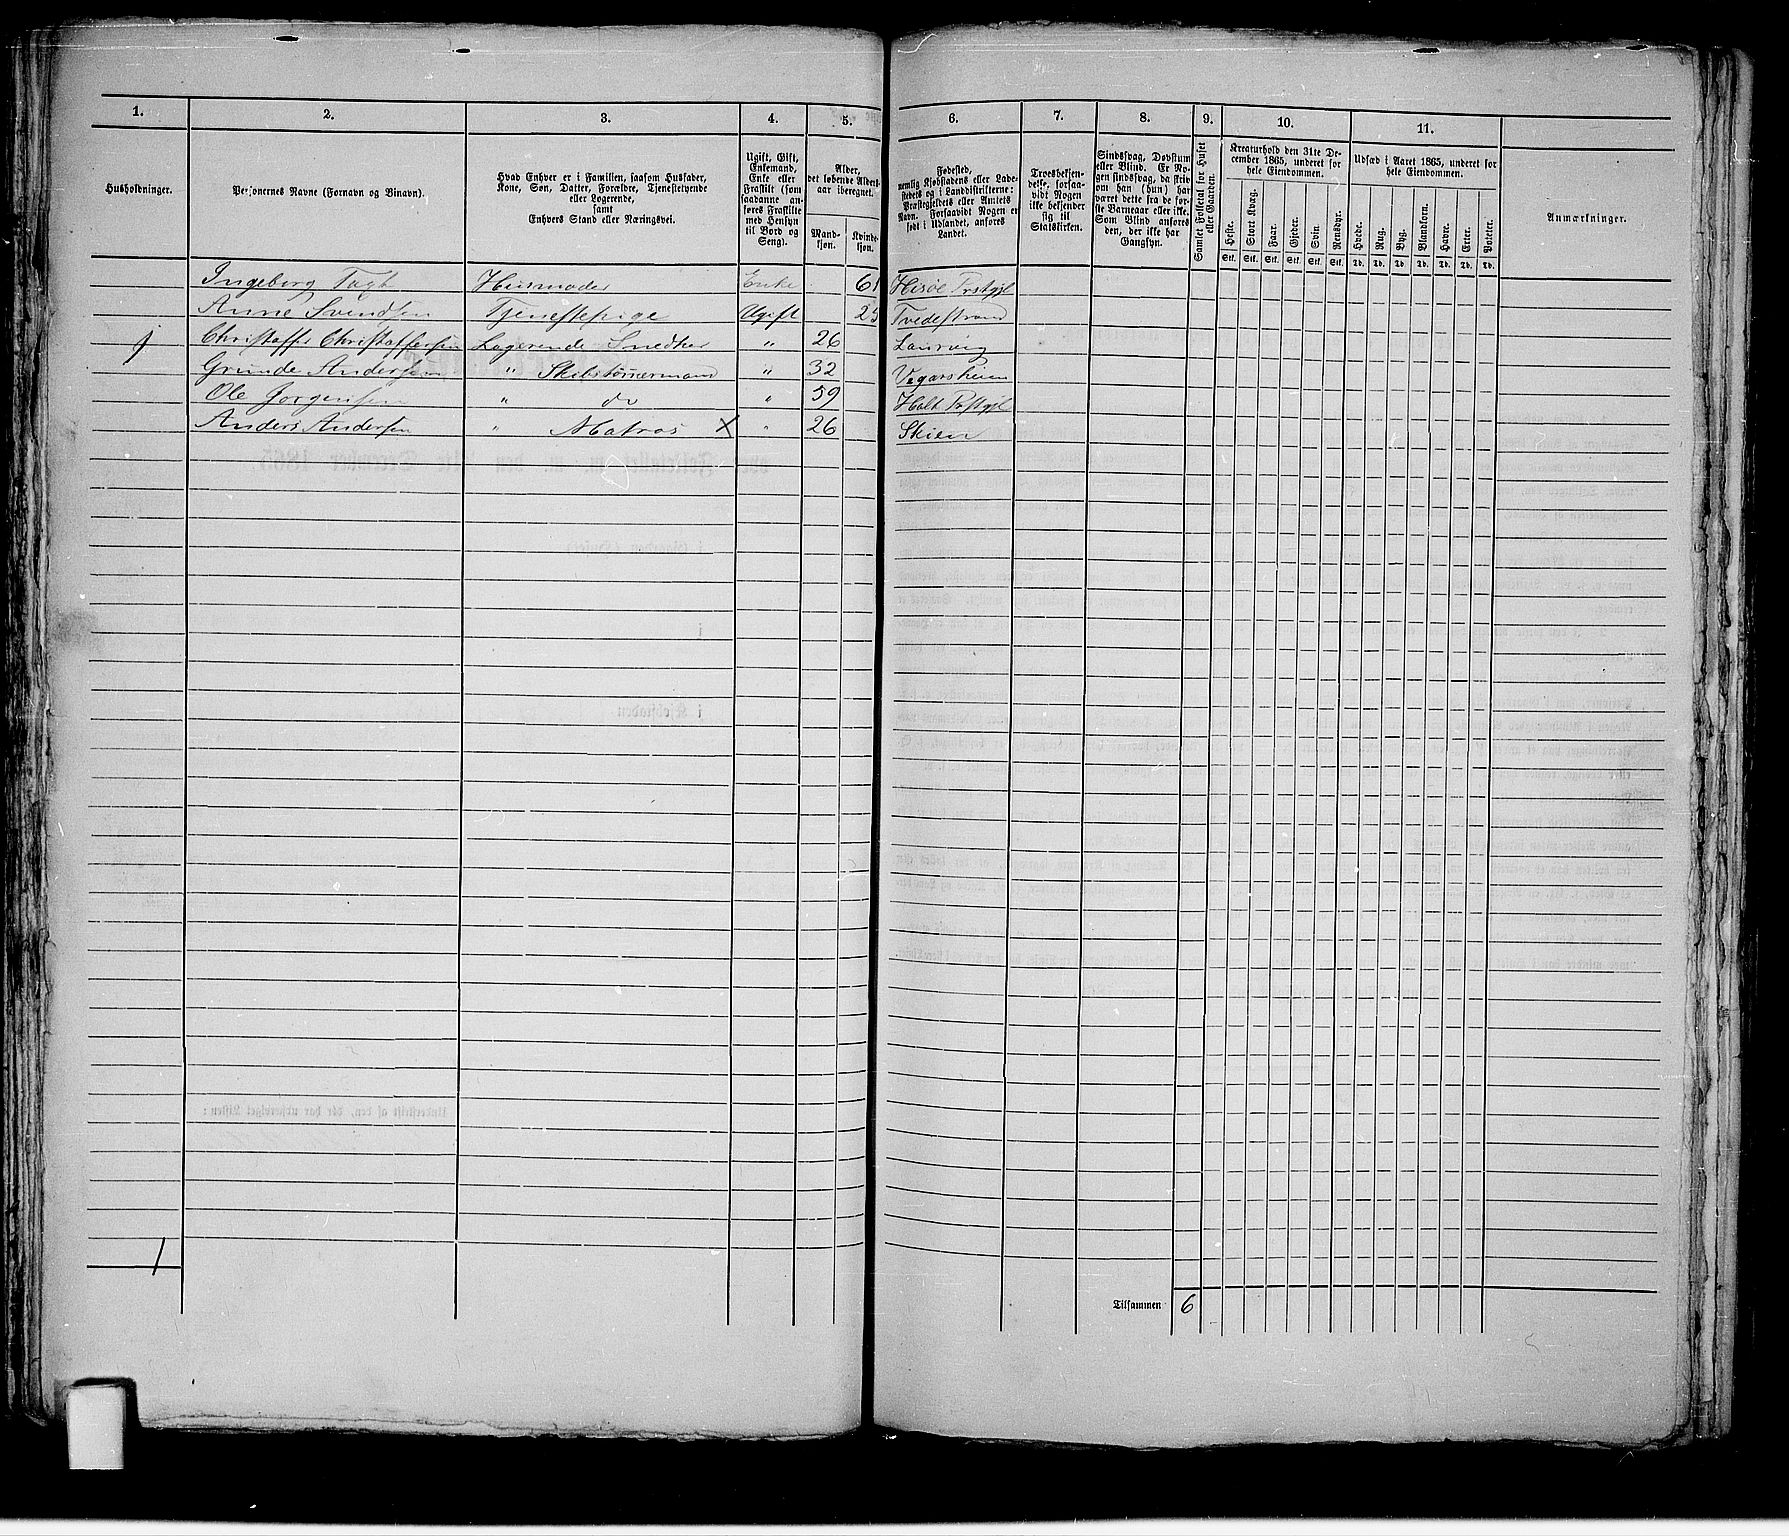 1. 2. 3. 4. 5. 6. 7. 8. 9. 10. 11.
Husholdninger.
Personernes Navne (Fornavn og Binavn).
Hvad Enhver er i Familien, saasom Husfader,
Kone, Søn, Datter, Forældre, Tjenestetyende
eller Logerende,
samt
Enhvers Stand eller Næringsvei.
Ugift, Gift,
Enkemand,
Enke eller
Fraskilt (som
saadanne an-
føres Fraskilte
med Hensyn
til Bord og
Seng).
Alder,
det løbende Alders-
aar iberegnet.
Mand-
kjøn.
Kvinde-
kjøn.
Fødested,
nemlig Kjøbstadens eller Lade-
stedets og i Landdistrikterne:
Præstegjeldets eller Amtets
Navn. Forsaavidt Nogen er
født i Udlandet, anføres
Landet.
Troesbekjen-
delse, forsaa-
vidt Nogen
ikke bekjender
sig til
Statskirken.
Sindssvag, Døvstum
eller Blind. Er No-
gen sindssvag, da skriv
om han (hun) har
været dette fra de før-
ste Barneaar eller ikke.
Som Blind anføres
den, der ikke har
Gangsyn.
Samlet Folketal for Huset
eller Gaarden.
Kreaturhold den 31te De-
cember 1865, underet for
hele Eiendommen.
Heste. Stort Kvæg. Faar. Gjeder. Svin. Rensdyr.
Stk. Stk. Stk. Stk. Stk. Stk.
Udsæd i Aaret 1865, underet for
hele Eiendommen.
Hvede. Rug. Byg. Blandkorn. Havre. Erter. Poteter.
Td. Td. Td. Td. Td. Td. Td.
Anmærkninger.
Ingeborg Tagt Husmoder Enke 61 Hisöe Prstgjl
Anne Svendsen Tjenestepige Ugift 25 Tvedestrand
Christoffr Christoffersen Logerende Snedker " 26 Laurvig
Grunde Andersen " Skibstømmermand " 32 Vegarsheien
Ole Jorgensen " do " 59 Holt Prstgjl
Anders Andersen " Matros X " 26 Skien
1
Tilsammen 6